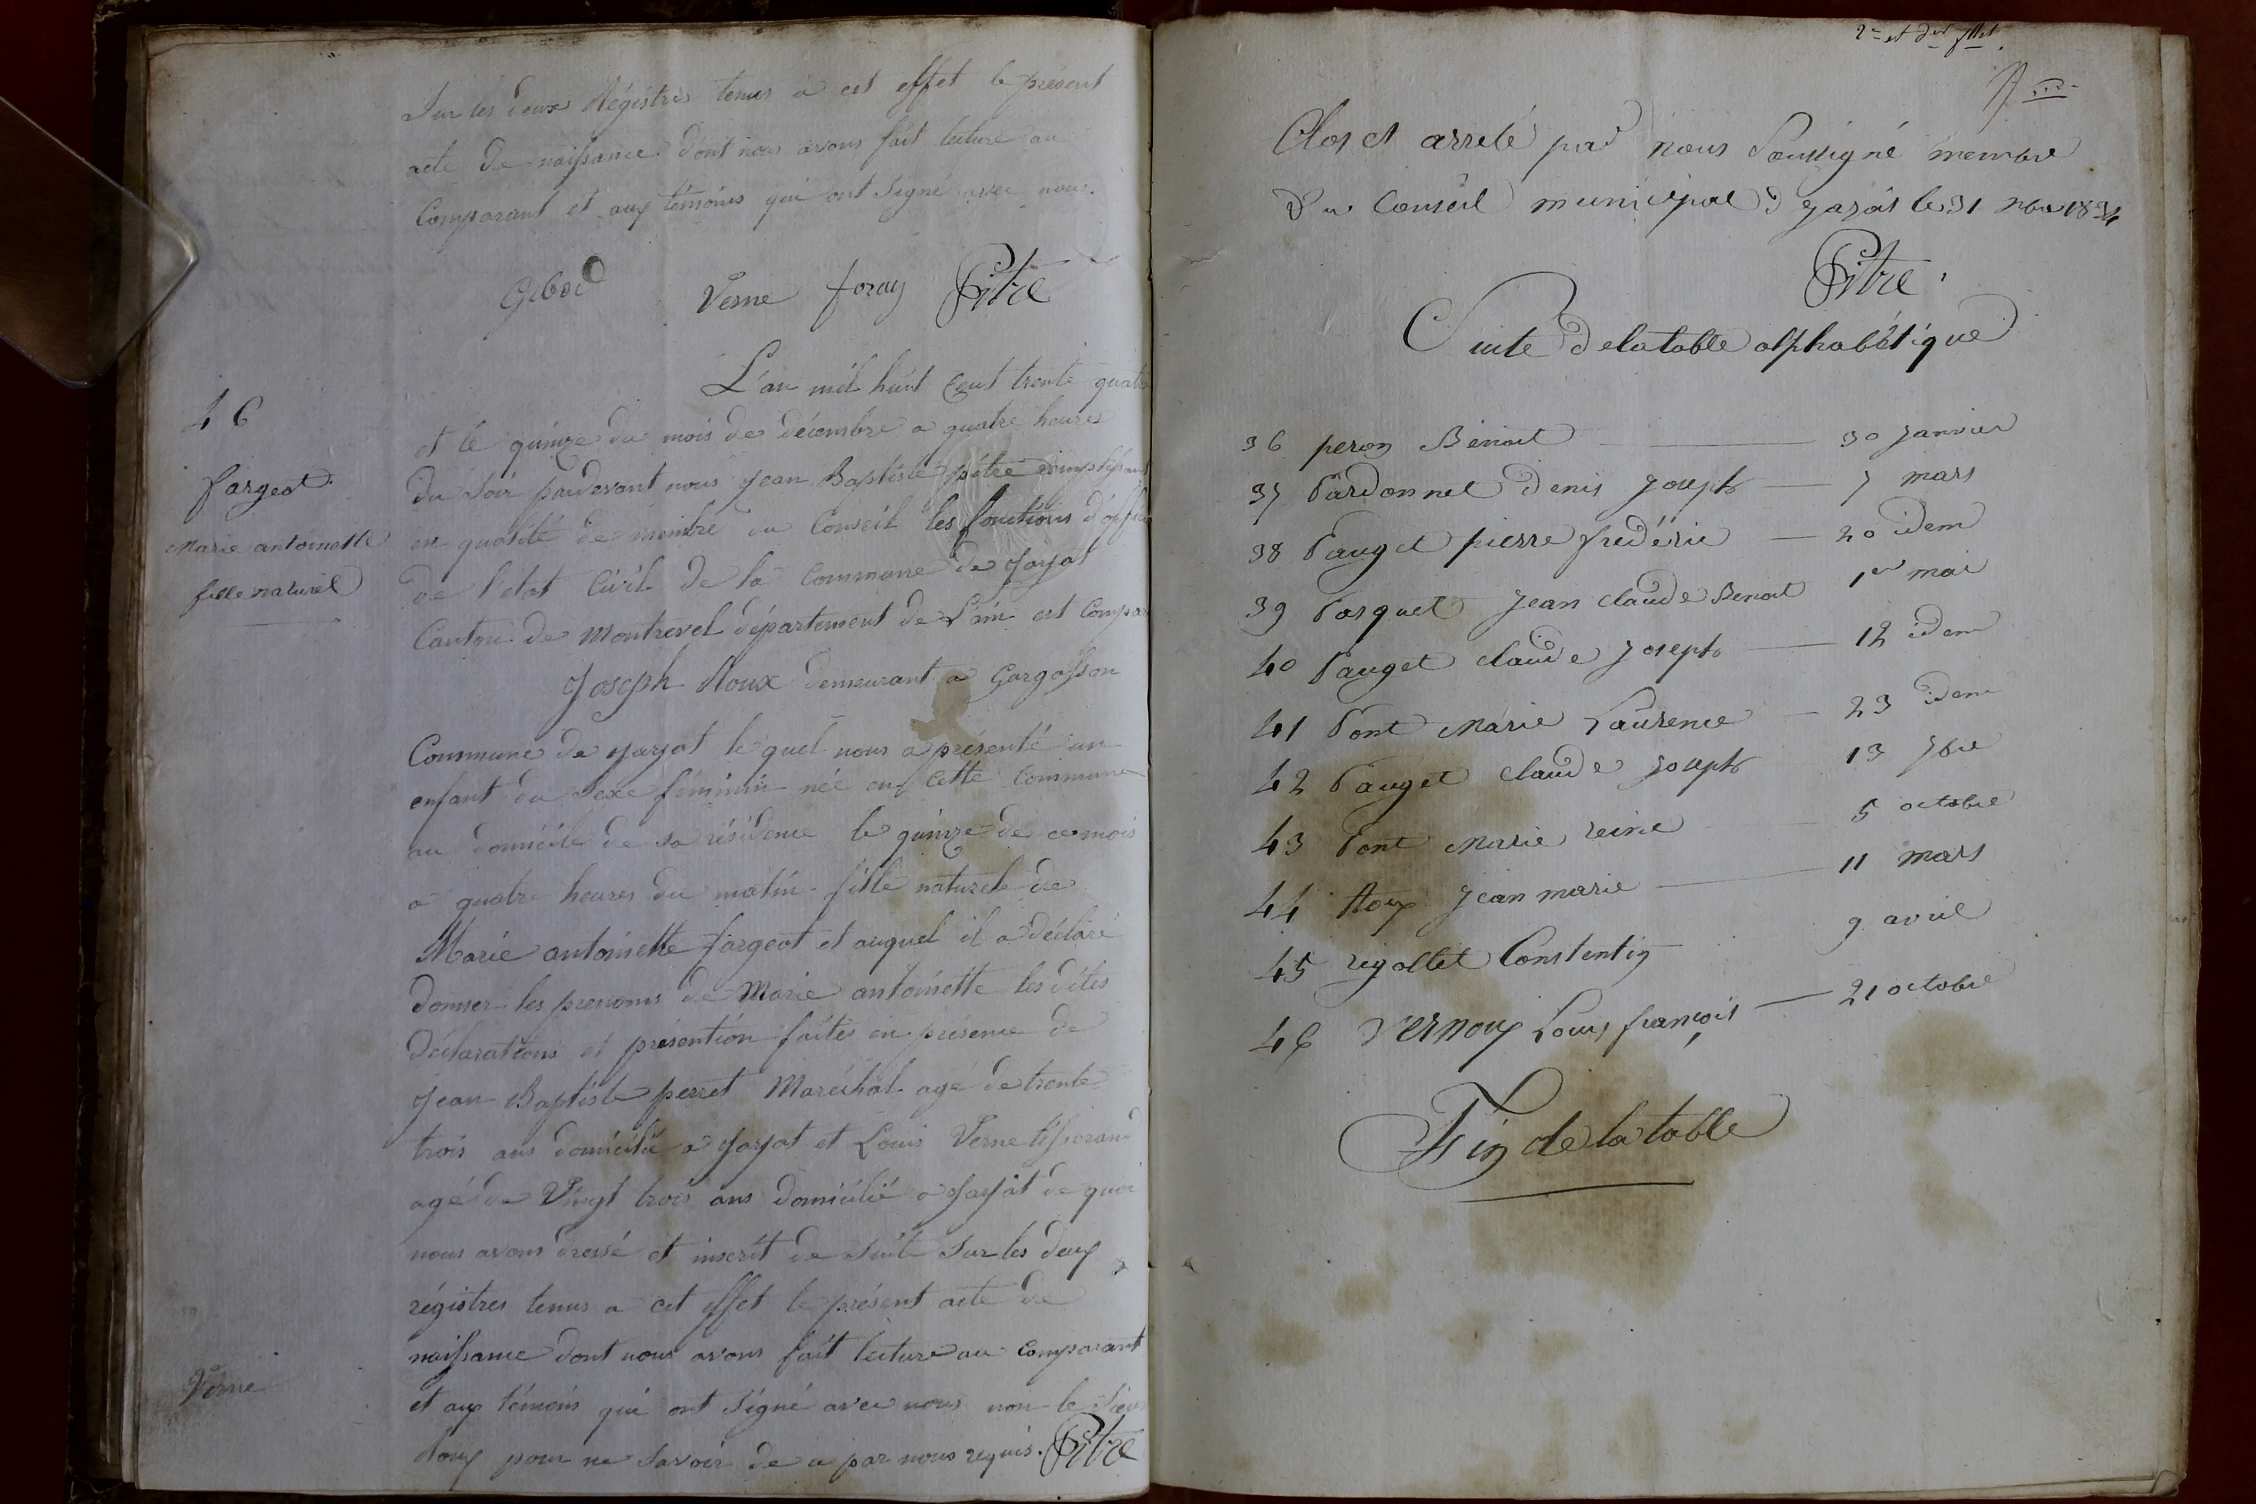 Sur les deux Régistres tenus a cet effet le présent
acte de naissance dont nous avons fait lecture au
Comparant et aux témoins qui ont Signé avec nous.
Verne foray Pitre
46
fargeot
Marie antoinette
fille naturel
L'an mil huit Cent trente quatre
et le quinze du mois de décembre a quatre heures
du Soir pardevant nous Jean Baptiste pitre
en qualité de membre du Conseil les fonctions d'officier
de l'état Civil de la Commune de Jayat
Canton de Montrevel département de L'ain est Compar
Joseph Roux demeurant a
Commune de Jayat le quel nous a présenté un
enfant du Sexe féminin née en cette Commune
au domicile de sa résidence le quinze de ce mois
a quatre heures du matin fille naturele de
Marie antoinette fargeot et auquel il a déclaré
donner les prenoms de Marie antoinette les dites
déclarations et présention faites en présence de
Jean Baptiste perret Maréchal agé de trente
trois ans domicilié a Jayat et Louis Verne tisserand
agé de Vingt trois ans domicilié a Jayat de quoi
nous avons dressé et inscrit de Suite Sur les deux
régistres tenus a cet effet le présent acte de
naissance dont nous avons fait lecture au Comparant
et aux témoins qui ont Signé avec nous non le Sieur
Roux pour ne Savoir de ce par nous requis. Pitre
Verne
2e et der fllet
Clos et arreté par nous Soussigné membre
Du Conseil municipal D jayat le 31 xbre 1834
Pitre
Suite de la table alphabétique
36 peron Benoit 30 Janvier
37 Pardonnet Denis Joseph 7 mars
38 Pauget pierre frédéric 20 idem
39 Pasquet Jean Claude Benoit 1er mai
40 Pauget Claude Joseph 12 idem
41 Pont Marie Laurence 23 idem
42 Pauget Claude Joseph 13 7bre
43 Pont Marie reine 5 octobre
44 Roux Jean marie 11 mars
45 rigollet Constentin 9 avril
46 Vernoux Louis françois 21 octobre
Fin de la table